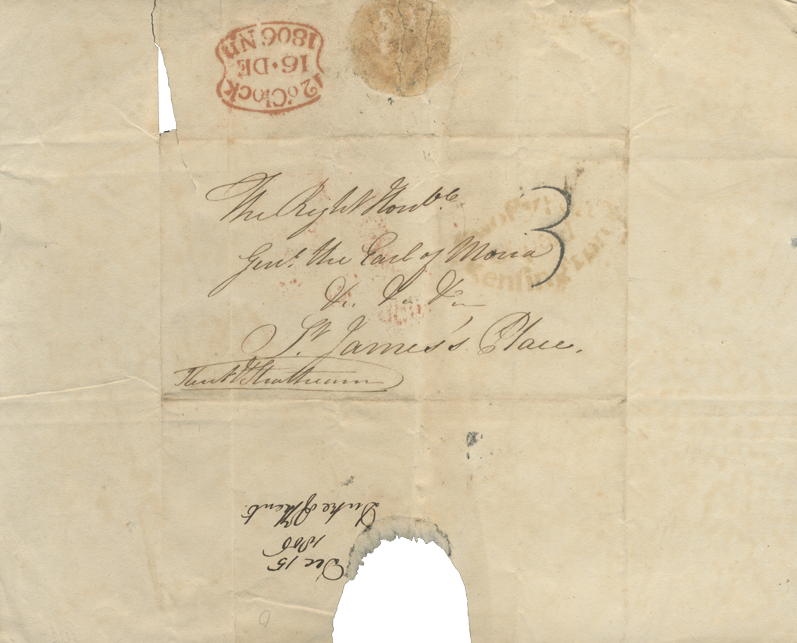 2 o'Clock
16 · DE
1806 NN
The Right Honble
Genl. the Earl of Moira
&c. &c. &c
St. James's Place.
Kent & Strathearn
3
Kensington
Dec 15
1806
Duke of Kent.